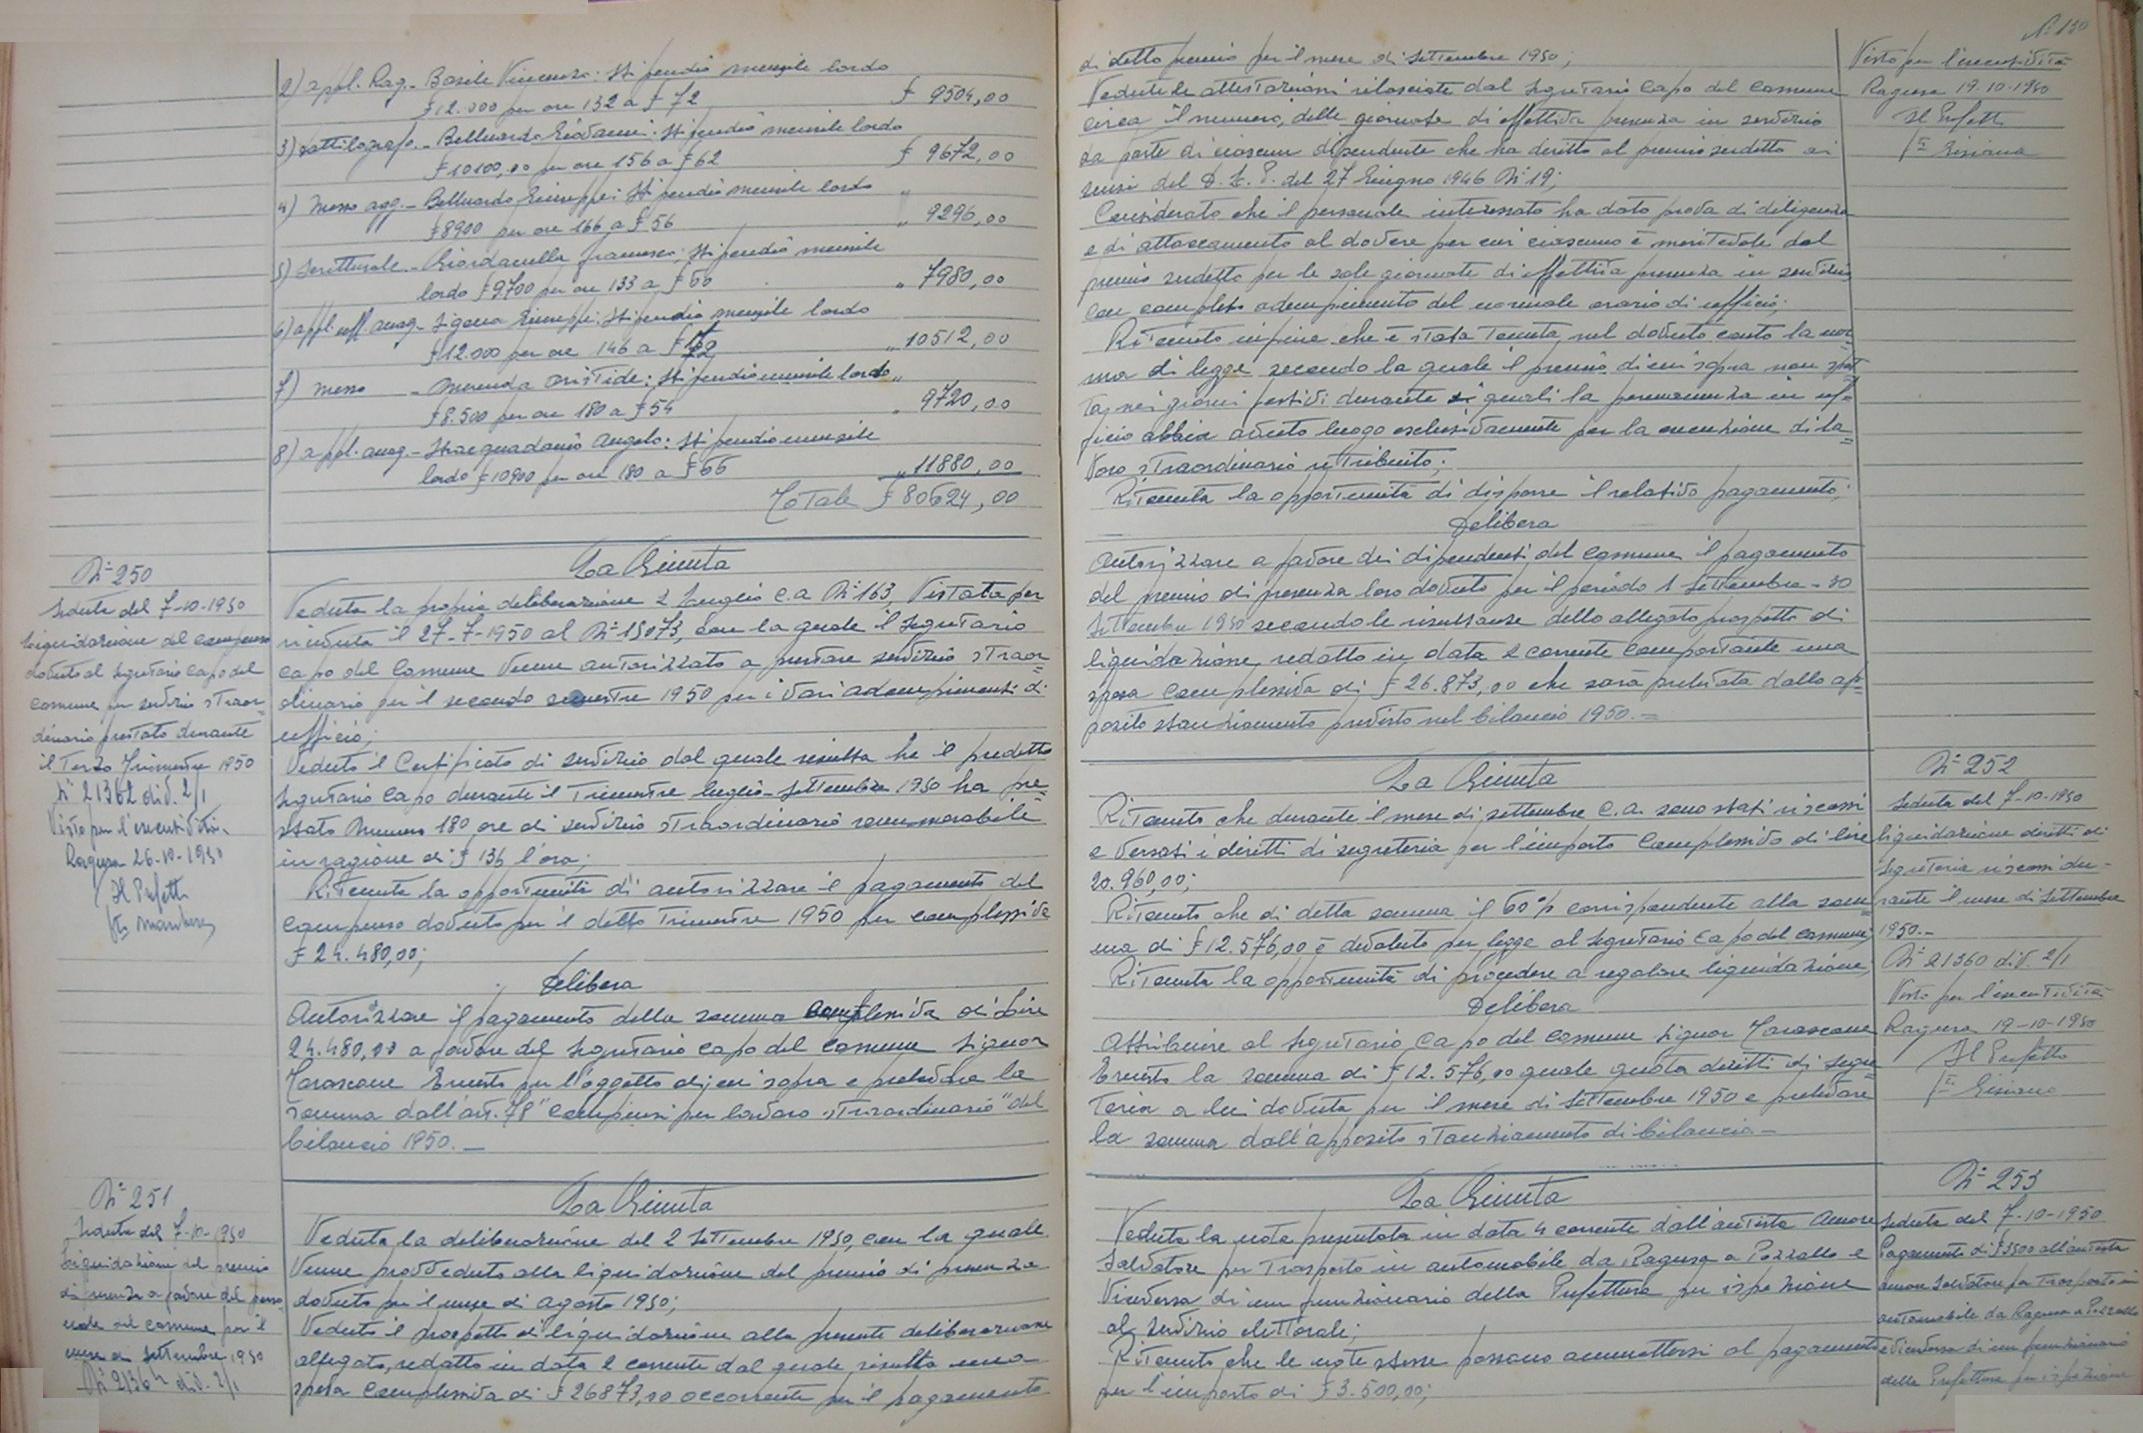 2) appl. Rag. - Basile Vincenzo: Stipendio mensile lordo
£ 12.000 per ore 132 a £ 72 £ 9504,00
3) Dattilografo. - Belluardo Giovanni: Stipendio mensile lordo
£ 10100,00 per ore 156 a £ 62 £ 9672,00
4) Messo agg. - Belluardo Giuseppe: Stipendio mensile lordo "
£ 8900 per ore 166 a £ 56 " 9296,00
5) Scritturale. - Giordanella Francesco; Stipendio mensile
lordo £ 9700 per ore 133 a £ 60 " 7980,00
6) appl. uff. anag. - Sigona Giuseppe: Stipendio mensile lordo
£ 12.000 per ore 146 a £ 72 " 10512,00
7) Messo - Merenda Aristide: Stipendio mensile lordo "
£ 8.500 per ore 180 a £ 54 " 9720,00
8) appl. anag. - Stracquadanio Angelo: Stipendio mensile
lordo £ 10900 per ore 180 a £ 66 " 11880,00
Totale £ 80624,00
N° 250
Seduta del 7-10-1950
Liquidazione del compenso
dovuto al Segretario Capo del
Comune per servizio straor=
dinario prestato durante
il Terzo Trimestre 1950
N° 21362 div. 2/1
Visto per l'esecutività
Ragusa 26-10-1950
Il Prefetto
La Giunta
Veduta la propria deliberazione 2 Luglio c.a. N° 163, Vistata per
ricevuta il 27-7-1950 al N° 15073, con la quale il Segretario
Capo del Comune venne autorizzato a prestare servizio straor=
dinario per il secondo semestre 1950 per i vari adempimenti di
ufficio;
Veduto il Certificato di servizio dal quale risulta che il predetto
Segretario Capo durante il Trimestre luglio-Settembre 1950 ha pre=
stato Numero 180 ore di servizio straordinario remunerabile
in ragione di £ 136 l'ora;
Ritenuta la opportunità di autorizzare il pagamento del
compenso dovuto per il detto Trimestre 1950 per complessive
£ 24.480,00;
Delibera
Autorizzare il pagamento della somma complessiva di Lire
24.480,00 a favore del Segretario Capo del Comune Signor
Tarascone Ernesto per l'oggetto di cui sopra e prelevare la
somma dall'art. 78 "Compensi per lavoro straordinario" del
bilancio 1950. -
N° 251
Seduta del 7-10-1950
Liquidazione del premio
di presenza a favore del perso
nale del comune per il
mese di Settembre 1950
div. 2/1
La Giunta
Veduta la deliberazione del 2 Settembre 1950, con la quale
venne provveduto alla liquidazione del premio di presenza
dovuto per il mese di Agosto 1950;
Veduto il prospetto di liquidazione alla presente deliberazione
allegato, redatto in data 2 corrente dal quale risulta una
spesa complessiva di £ 26873,00 occorrente per il pagamento
N° 130
di detto premio per il mese di Settembre 1950;
Vedute le attestazioni rilasciate dal Segretario Capo del Comune
circa il numero, delle giornate di effettiva presenza in servizio
da parte di ciascun dipendente che ha diritto al premio suddetto ai
sensi del D.L.P. del 27 Giugno 1946 N° 19;
Considerato che il personale interessato ha dato prova di diligenza
e di attaccamento al dovere per cui ciascuno è meritevole del
premio suddetto per le sole giornate di effettiva presenza in servizio
con completo adempimento del normale orario di ufficio;
Ritenuto infine che è stata tenuta nel dovuto conto la nor=
ma di legge secondo la quale il premio di cui sopra non spet
ta, nei giorni festivi durante i quali la permanenza in uf=
ficio abbia avuto luogo esclusivamente per la esecuzione di la=
voro straordinario retribuito;
Ritenuta la opportunità di disporre il relativo pagamento;
Delibera
Autorizzare a favore dei dipendenti del Comune il pagamento
del premio di presenza loro dovuto per il periodo 1 Settembre - 30
Settembre 1950 secondo le risultanze dello allegato prospetto di
liquidazione, redatto in data 2 corrente comportante una
spesa complessiva di £ 26.873,00 che sarà prelevata dallo ap=
posito stanziamento previsto nel bilancio 1950. =
Visto per l'esecutività
Ragusa 19-10-1950
Il Prefetto
La Giunta
Ritenuto che durante il mese di settembre c.a. sono stati riscossi
e versati i diritti di segreteria per l'importo complessivo di lire
20.960,00;
Ritenuto che di detta somma il 60% corrispondente alla som=
ma di £ 12.576,00 è devoluto per legge al Segretario Capo del Comune;
Ritenuta la opportunità di procedere a regolare liquidazione;
Delibera
Attribuire al Segretario Capo del Comune Signor Tarascone
Ernesto la somma di £ 12.576,00 quale quota diritti di segre=
teria a lui dovuta per il mese di Settembre 1950 e prelevare
la somma dall'apposito stanziamento di bilancio -
N° 252
Seduta del 7-10-1950
liquidazione diritti di
segreteria riscossi du-
rante il mese di Settembre
1950. -
N° 21360 div. 2/1
Visto per l'esecutività
Ragusa 19-10-1950
Il Prefetto
La Giunta
Veduta la nota presentata in data 4 corrente dall'autista Amore
Salvatore per trasporto in automobile da Ragusa a Pozzallo e
viceversa di un funzionario della Prefettura per ispezione
al servizio elettorale;
Ritenuto che le note stesse possano ammettersi al pagamento
per l'importo di £ 3.500,00;
N° 253
Seduta del 7-10-1950
Pagamento di £ 3500 all'autista
Amore Salvatore per trasporto in
automobile da Ragusa a Pozzallo
e viceversa di un funzionario
della Prefettura per ispezione